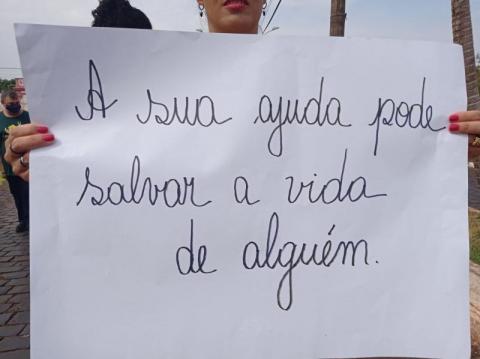 A sua ajuda pode
salvar a vida
de alguém.